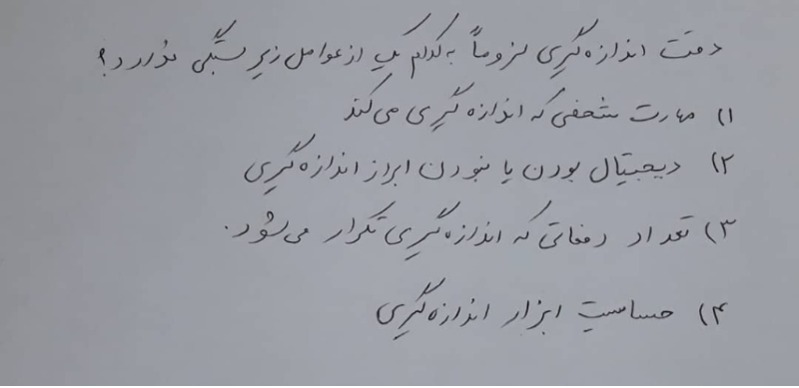 دقت اندازه‌گیری لزوماً به کدام یک از عوامل زیر بستگی ندارد؟
۱) مهارت شخصی که اندازه‌گیری می‌کند
۲) دیجیتال بودن یا نبودن ابزار اندازه‌گیری
۳) تعداد دفعاتی که اندازه‌گیری تکرار می‌شود.
۴) حساسیت ابزار اندازه‌گیری